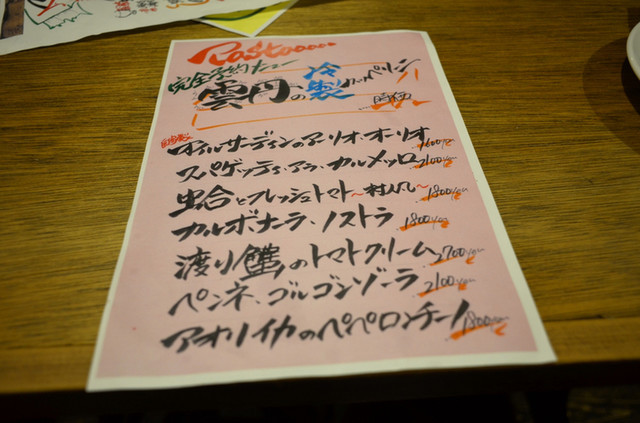 Pastaoooo
完全予約メニュー
雲丹の冷製カッペリーニ 時価
自家製 オイルサーディンのアーリオ・オーリオ 1600yen
スパゲッティ、アラ、カルメッロ 2100yen
蛤とフレッシュトマト〜村人風〜 1800yen
カルボナーラ、ノストラ 1800yen
渡り蟹のトマトクリーム 2700yen
ペンネ、ゴルゴンゾーラ 2100yen
アオリイカのペペロンチーノ 1800yen